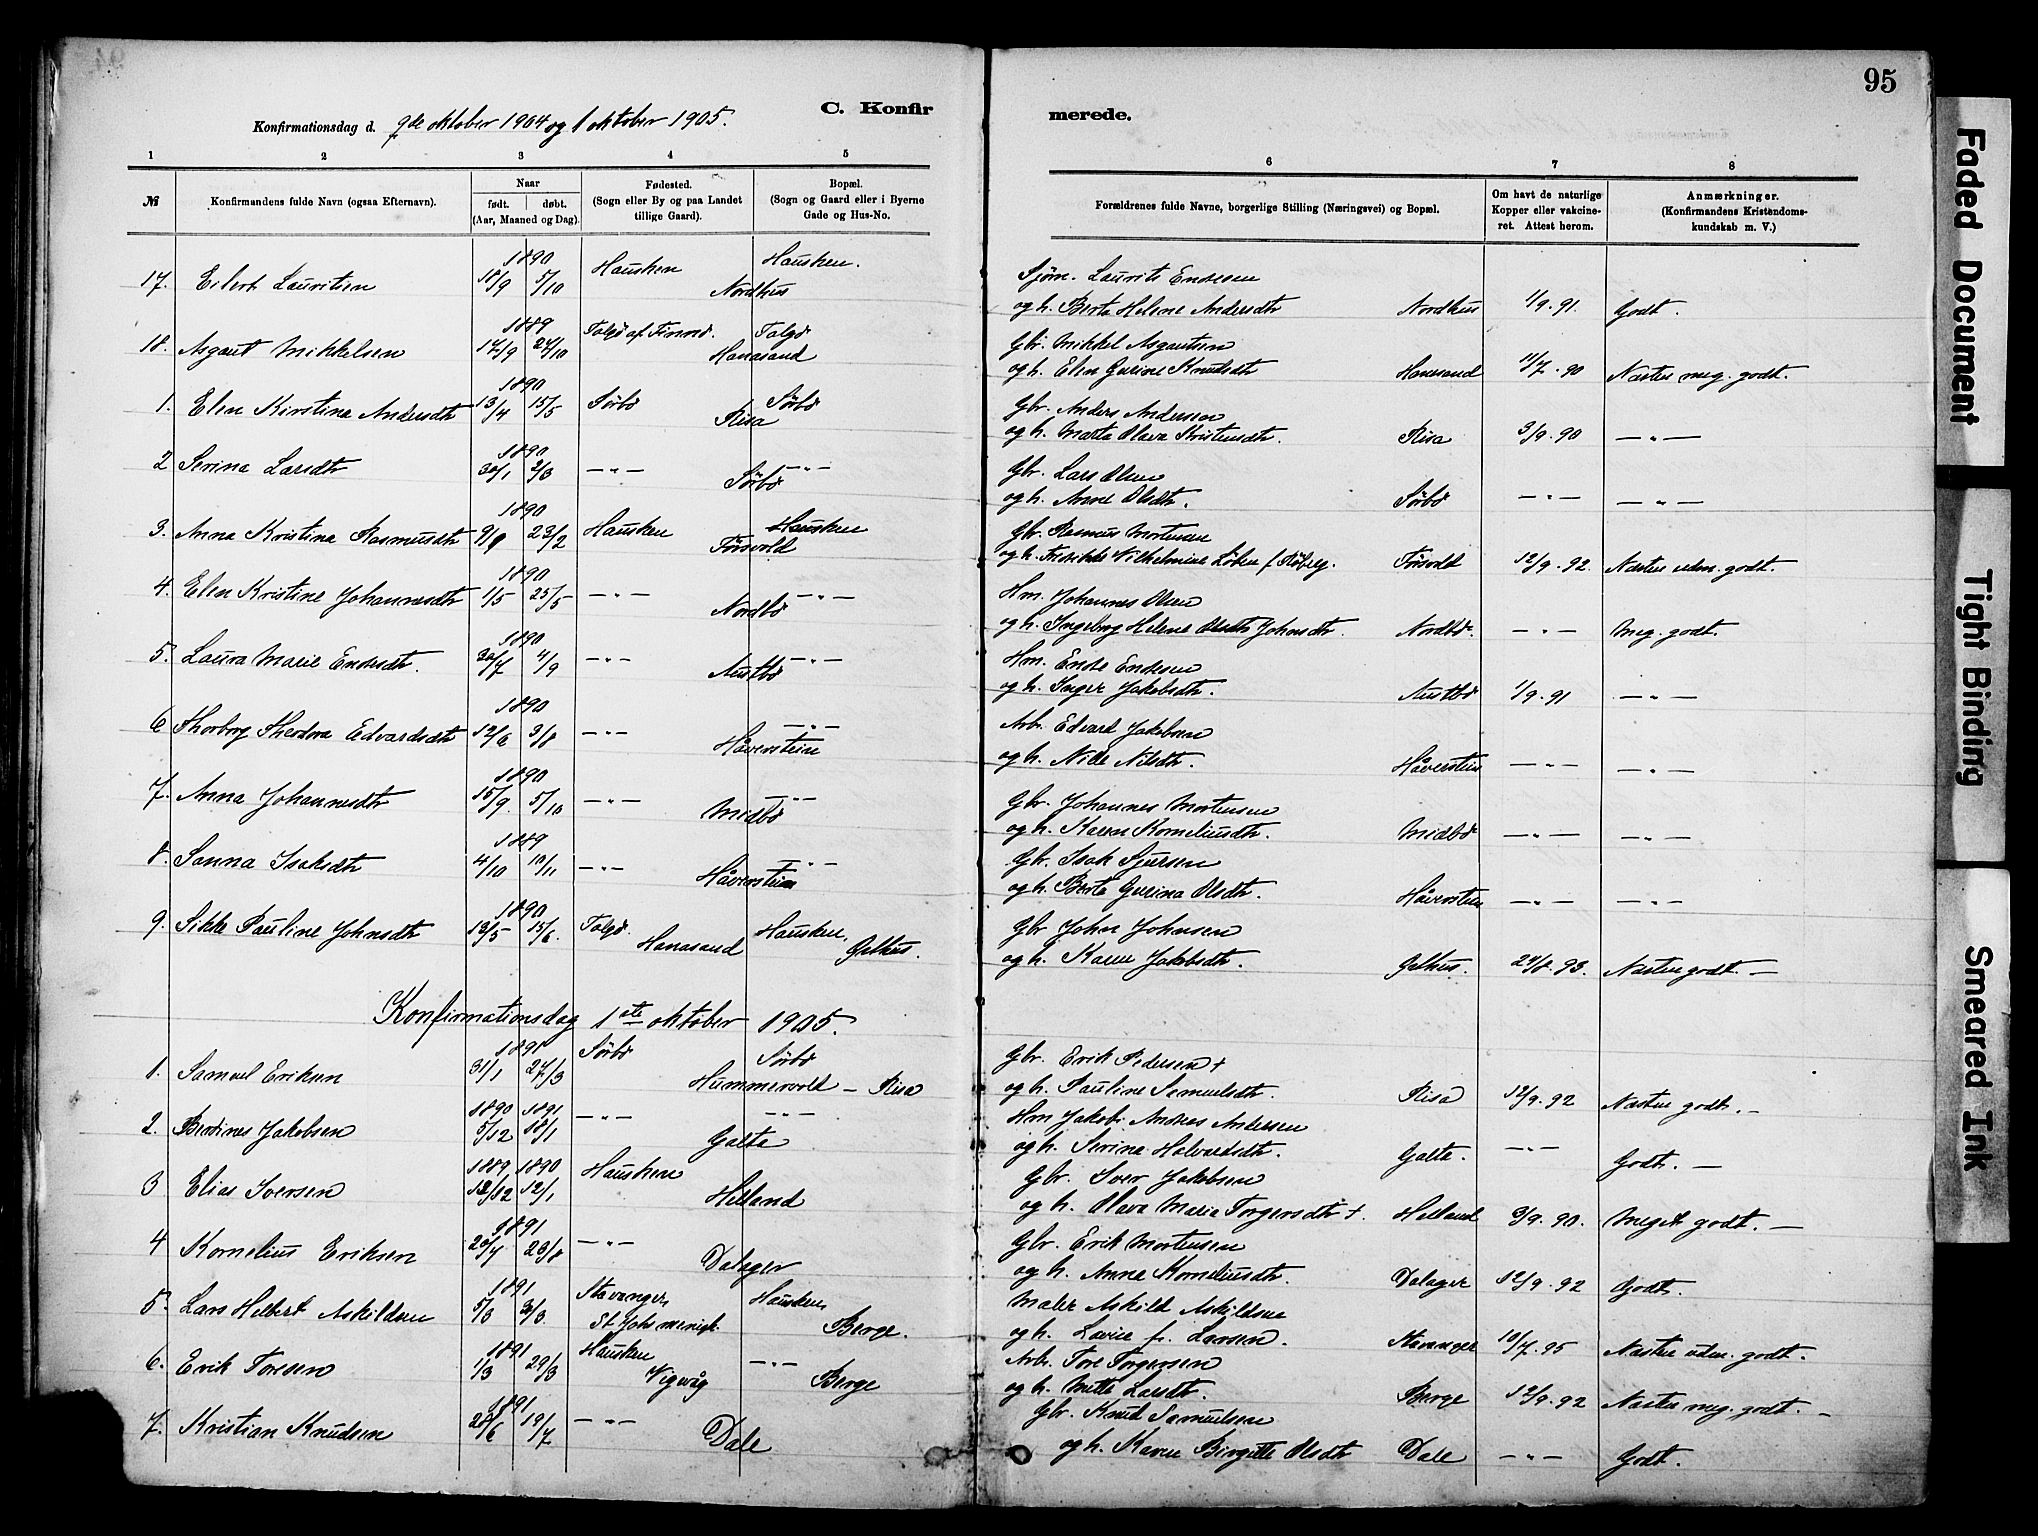 95
C. Konfir
merede.
Konfirmationsdag d. 9de oktober 1904 og 1 oktober 1905.
1 2 3 4 5 6 7 8
№ Konfirmandens fulde Navn (ogsaa Efternavn). Naar født. døbt. (Aar, Maaned og Dag). Fødested. (Sogn eller By og paa Landet tillige Gaard). Bopæl. (Sogn og Gaard eller i Byerne Gade og Hus-No. Forældrenes fulde Navne, borgerlige Stilling (Næringsvei) og Bopæl. Om havt de naturlige Kopper eller vakcineret. Attest herom. Anmærkninger. (Konfirmandens Kristendomskundskab m. V.)
1890 Hausken Hausken. Sjøm. Laurits Endresen
17. Eilert Lauritsen 18/9 5/10 Nordhus og h. Berta Helene Andersdtr Nordhus 1/9.91. Godt.
1889 Talgø af Finnø. Talgø Gbr. Mikkel Asgautsen
18. Asgaut Mikkelsen 17/9 27/10 Hanasand og h. Elen Gurine Knutsdtr Hanasand 11/7.90 Næsten meg. godt.
1890 Gbr. Anders Andersen
1. Elen Kirstina Andersdtr 13/4 15/5 Sørbø Sørbø Risa og h. Marta Olava Kristensdtr. Risa 3/9.90 —"—
1890 Gbr. Lars Olsen
2 Serina Larsdtr 30/1 2/3 —"— Sørbø —"— og h. Anne Olsdtr. Sørbø —"— —"—
1890 Gbr. Rasmus Mortensen
3. Anna Kristina Rasmusdtr 9/1 23/2 Hausken Hausken Førsvold og h. Fredrikke Vilhelmine Løken f. Førsvold 12/9.92. Næsten udm. godt.
1890 Hm. Johannes Olsen
4. Elen Kristine Johannesdtr 1/5 25/5 —"— Nordbø —"— og h. Ingeborg Helene Johnsdtr. Nordbø. —"— Meg. godt.
1890 Hm. Endre Endresen
5. Laura Marie Endresdtr. 30/7 4/9 —"— Austbø —"— og h. Inger Jakobsdtr. Austbø 1/9.91 —"—
1890 Arb. Edvard Jakobsen
6 Thorborg Theodora Edvardsdtr 12/6 3/8 —"— Håverstein —"— og h. Nille Nilsdtr. Håverstein —"— —"—
1890 Gbr. Johannes Mortensen
7. Anna Johannesdtr 15/9. 5/10 —"— Midbø —"— og h. Karen Korneliusdtr. Midbø —"— —"—
1889 Gbr. Isak Sjursen
8. Sanna Isaksdtr 4/10 10/11 —"— Håverstein —"— og h. Berta Gurina Olsdtr. Håverstein —"— —"—
1890 Gbr John Johnsen
9. Sikke Pauline Johnsdtr 13/5 15/6. Talgø. Hanasand Hausken, Gelhus. og h. Karen Jakobsdtr. Gelhus. 24/8.93. Næsten godt. —
Konfirmationsdag 1ste oktober 1905.
1891 Sørbø Sørbø Gbr. Erik Pedersen +
1. Samuel Eriksen 31/1 27/3 Hummervold — Risa og h. Pauline Samuelsdtr. Risa 12/9.92 Næsten godt. —
1890 1891 Hm Jakob Andreas Andersen
2. Berdines Jakobsen 5/12 18/1 —"— Galta —"— og h. Serine Halvardsdtr. Galta. —"— Godt. —
1889 1890 Gbr. Iver Jakobsen
3 Elias Iversen 12/12 12/1 Hausken Helland og h. Olava Maria Torgersdtr +. Helland 3/9.90. Meget godt. —
1891 Gbr. Erik Mortensen
4 Kornelius Eriksen 20/7 23/8 —"— Dalager og h. Anne Korneliusdtr. Dalager 12/9.92 Godt.
1891 Stavanger, Hausken, Maler Askild Askildsen
5. Lars Helbert Askildsen 5/3 St. Johs menigh. Berge. og h. Lovise f. Larsen. Stavanger 10/7.95 Næsten udm. godt.
1891 Hausken Arb. Tore Torgersen
6. Erik Toresen 1/3 29/3 Vigevåg —"— Berge og h. Mette Larsdtr. Berge 12/9.92 Næsten meg. godt. —
1891 Gbr. Knut Samuelsen
7. Kristian Knudsen 28/6 19/7 —"— Dale og h. Karen Birgitte Olsdtr Dale —"— Godt.
Faded Document
Tight Binding
Smeared Ink